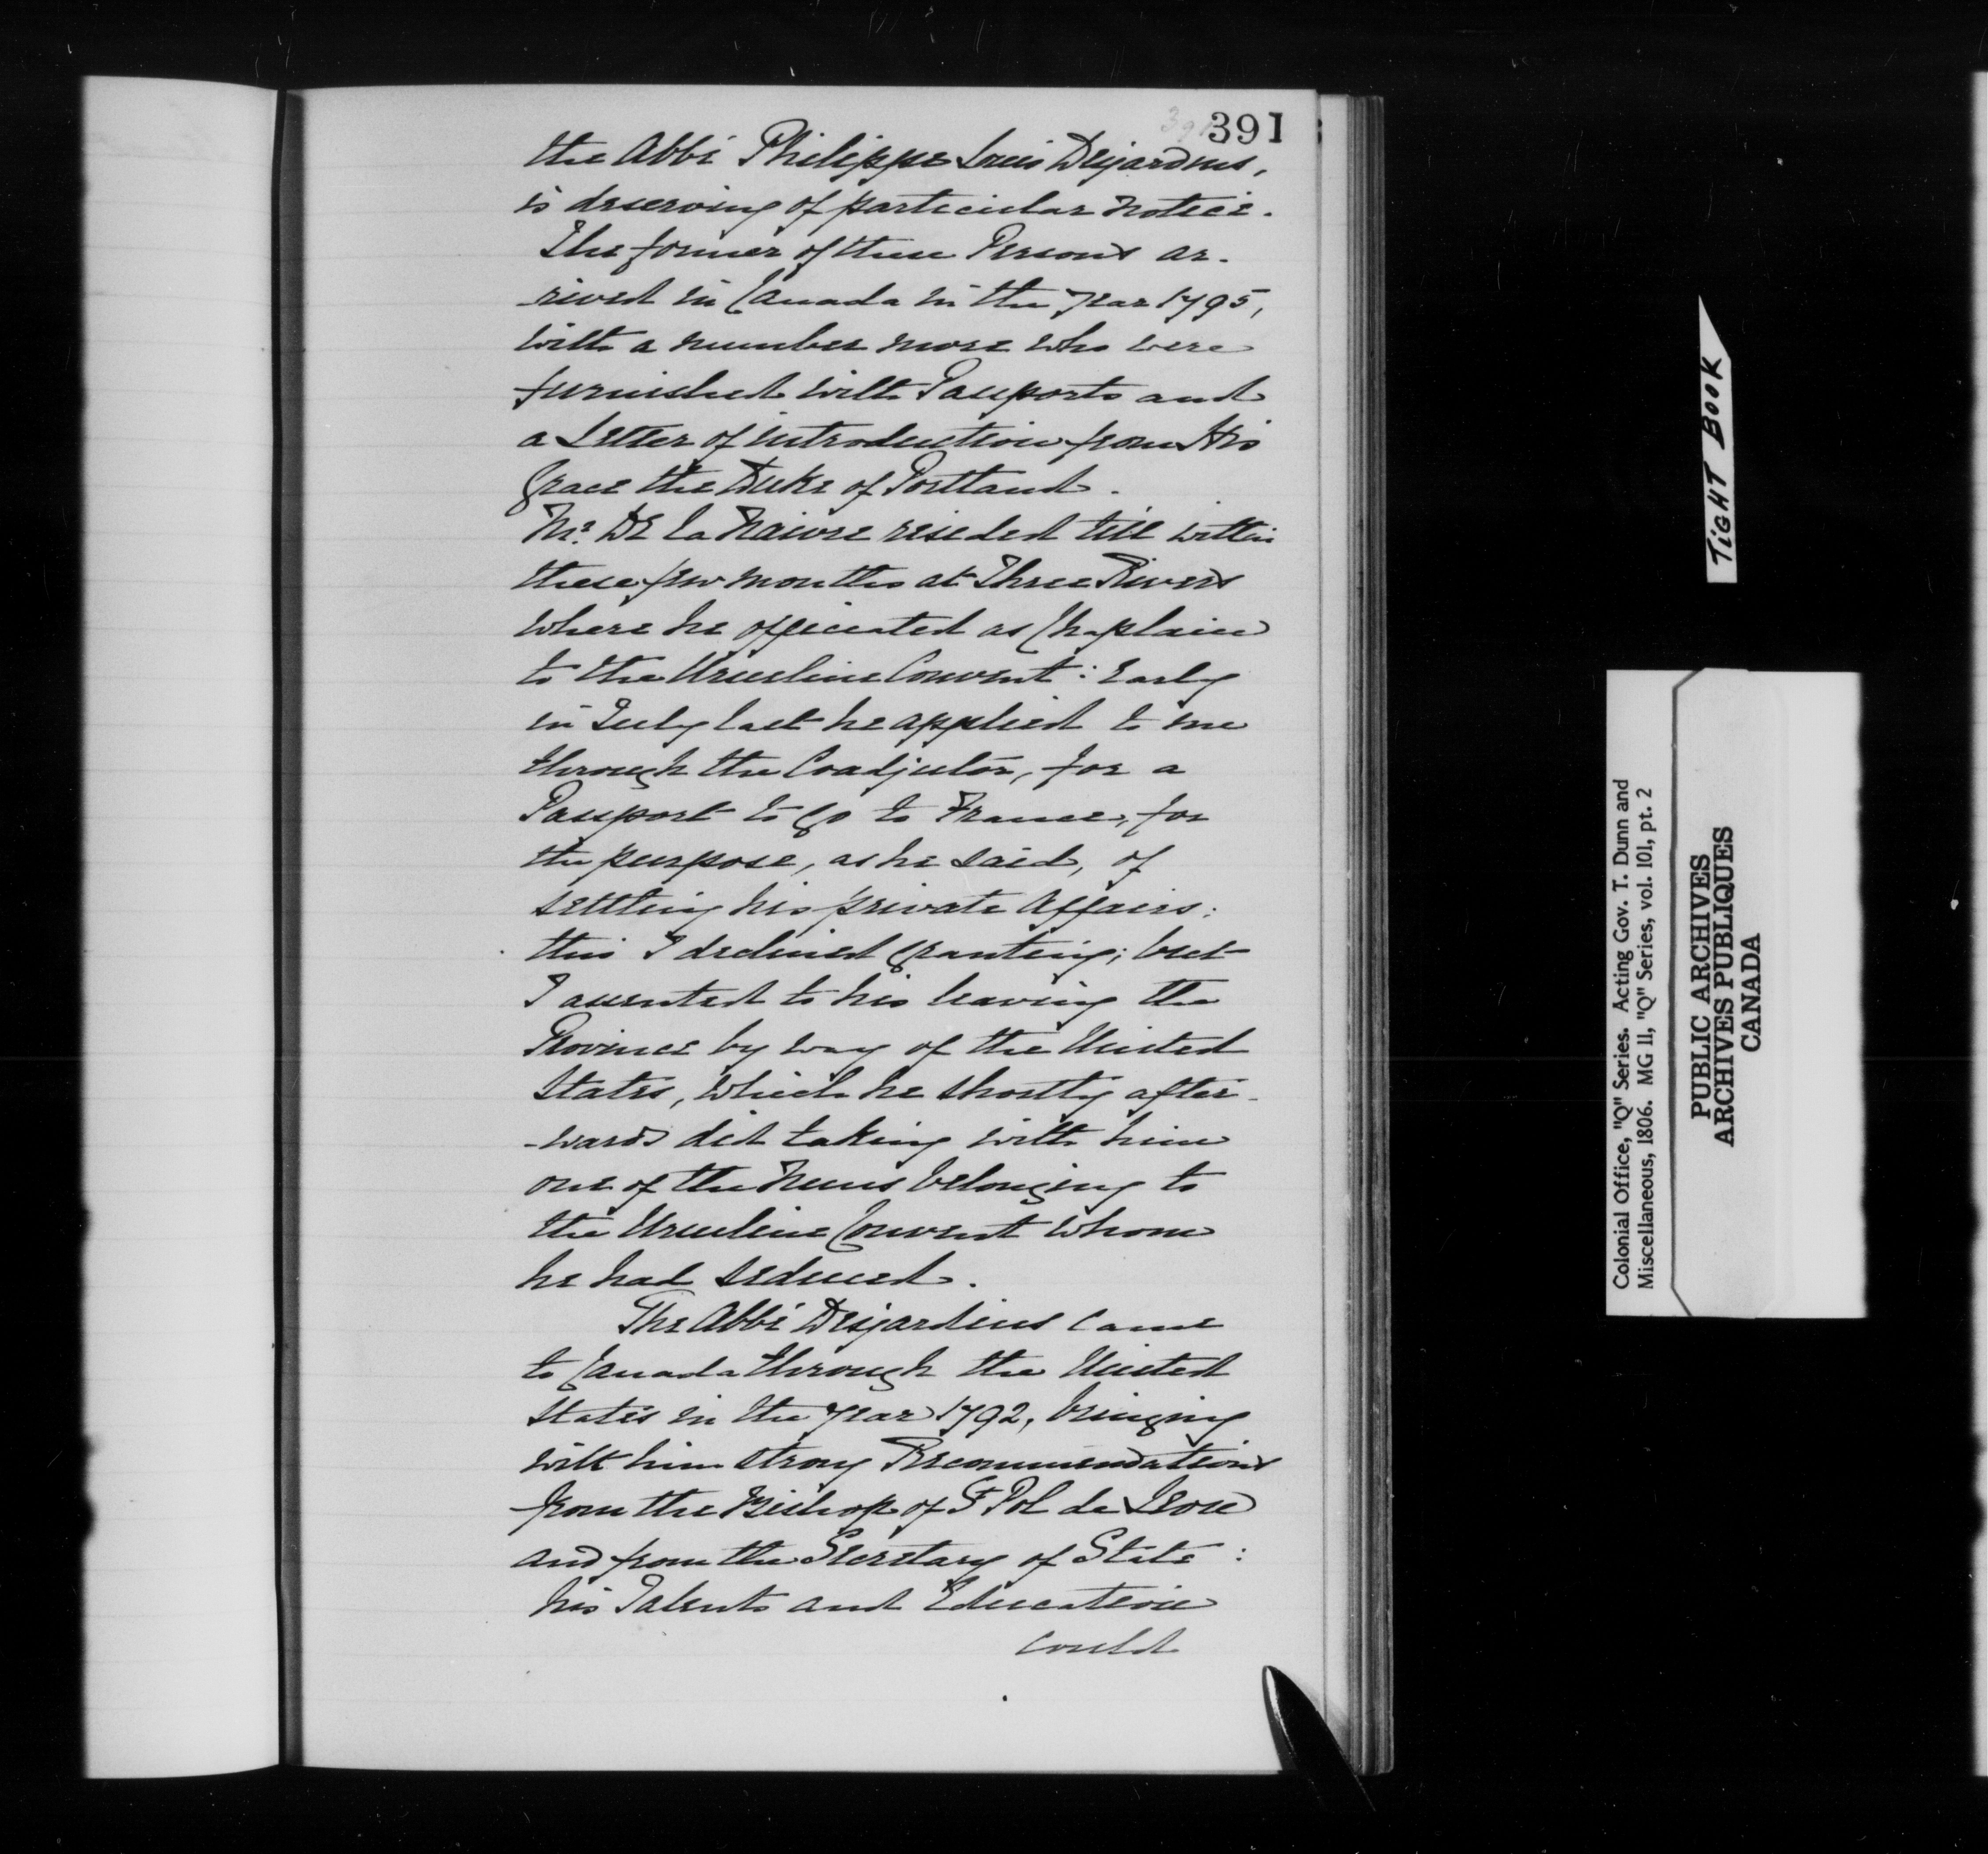 391
391
the Abbé Philippe Louis Desjardins,
is deserving of particular notice.
The former of these Persons ar-
-rived in Canada in the year 1795,
with a number more who were
furnished with Passports and
a Letter of introduction from His
Grace the Duke of Portland.
Mr. De la Naivre resided till within
these few months at Three Rivers
where he officiated as Chaplain
to the Ursuline Convent: Early
in July last he applied to me
through the Coadjutor, for a
Passport to go to France, for
the purpose, as he said, of
settling his private Affairs:
this I declined granting; but
I assented to his leaving the
Province by way of the United
States, which he shortly after-
-wards did taking with him
one of the Nuns belonging to
the Ursuline Convent whom
he had seduced.
The Abbé Desjardins came
to Canada through the United
States in the year 1792, bringing
with him strong Recommendations
from the Bishop of St Pol de Leon
and from the Secretary of State:
his Talents and Education
could
TIGHT BOOK
Colonial Office, "Q" Series. Acting Gov. T. Dunn and
Miscellaneous, 1806. MG 11, "Q" Series, vol. 101, pt. 2
PUBLIC ARCHIVES
ARCHIVES PUBLIQUES
CANADA